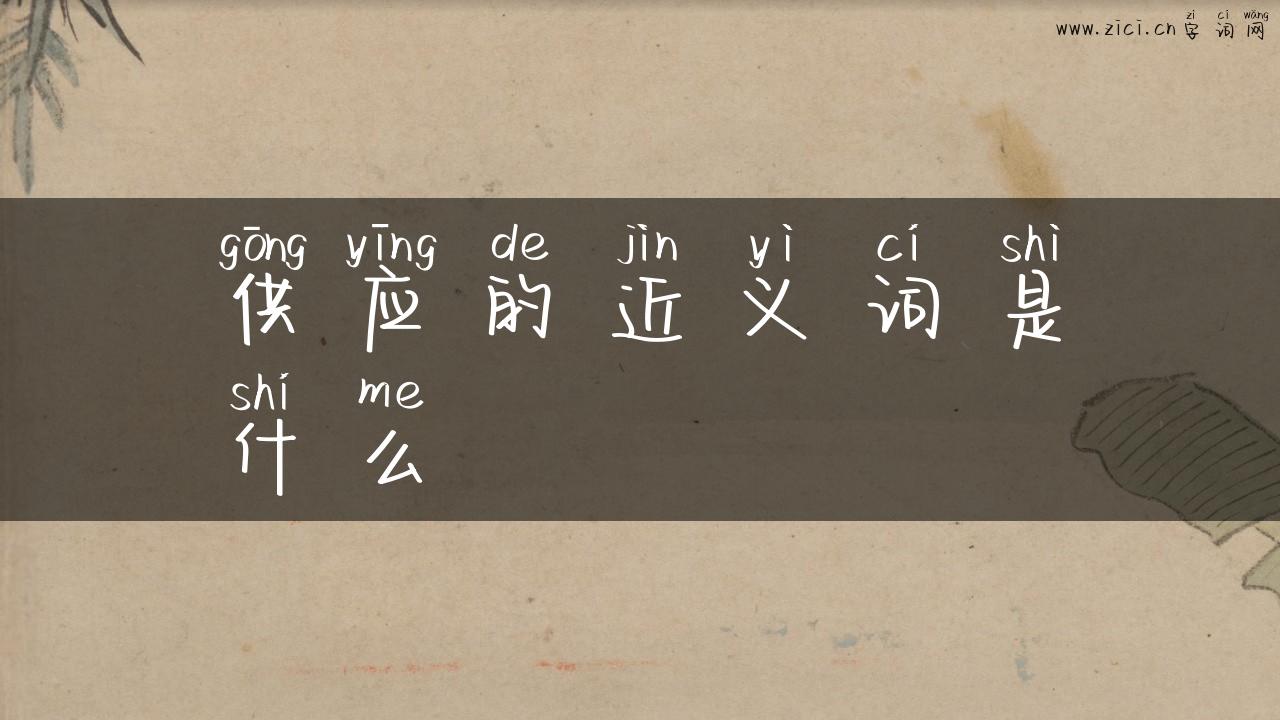 zì cí wǎng
www.zici.cn 字词网
gōng yīng de jìn yì cí shì
供应的近义词是
shí me
什么